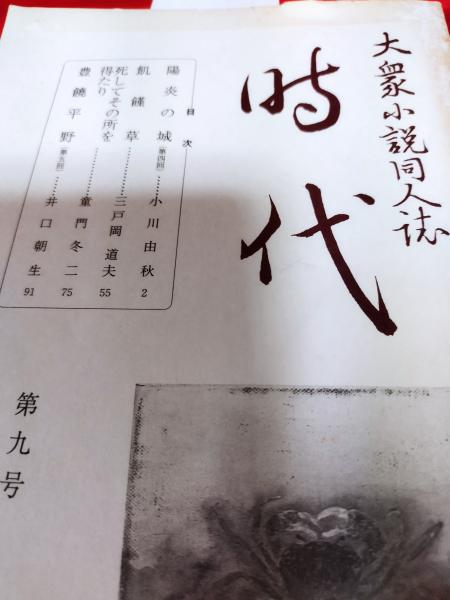 大衆小説同人誌
時代
目次
陽炎の城(第四回)……小川由秋 2
飢饉草……三戸岡道夫 55
死してその所を
得たり……童門冬二 75
豊饒平野(第五回)……井口朝生 91
第九号